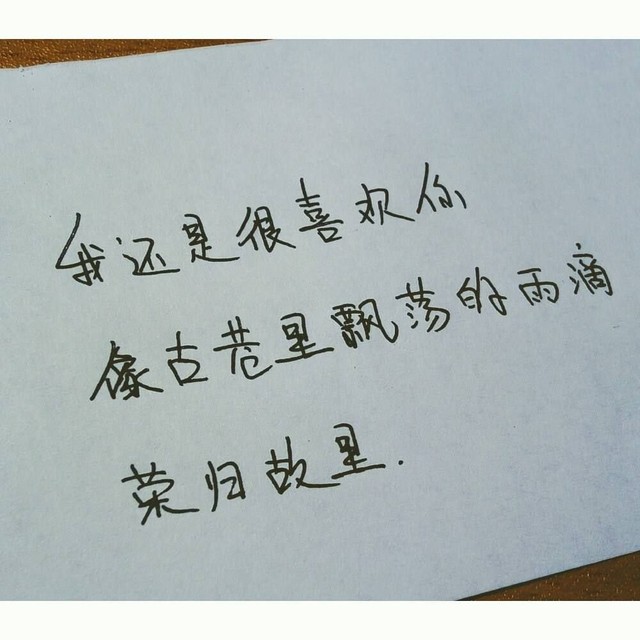 我还是很喜欢你
像古巷里飘荡的雨滴
荣归故里.